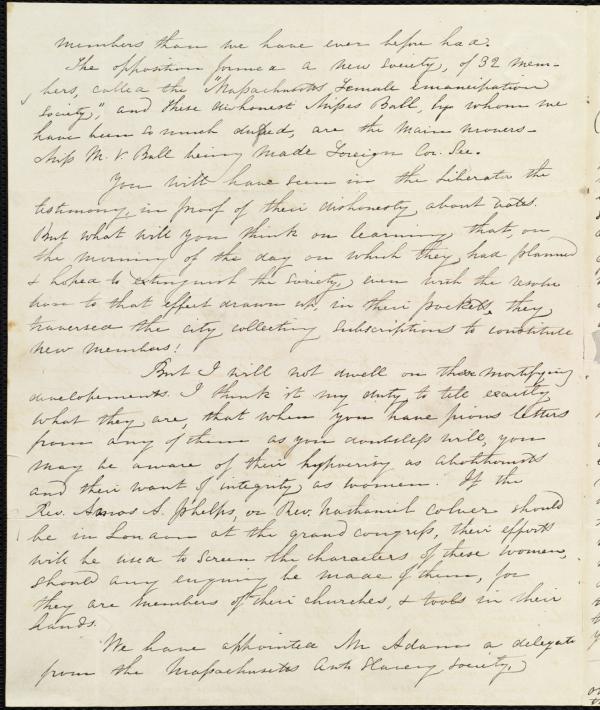 members than we have ever before had.
The opposition formed a new society, of 32 mem-
bers, called the "Massachusetts Female emancipation
Society," and these dishonest Misses Ball, by whom we
have been so much duped, are the main movers-
Miss M. V. Ball being made Foreign Cor. Sec.
You will have seen in the Liberator the
testimony, in proof of their dishonesty about votes.
But what will you think on learning that, on
the morning of the day on which they had planned
& hoped to extinguish the society, even with the resolu
tion to that effect drawn up, in their pockets, they
traversed the city collecting subscriptions to constitute
new members!
But I will not dwell on these mortifying
developements. I think it my duty to tell exactly
what they are, that when you have pious letters
from any of them as you doubtless will, you
may be aware of their hypocrisy as abolitionists
and their want of integrity as women. If the
Rev. Amos A. Phelps, or Rev. Nathaniel Colver should
be in London at the grand congress, their efforts
will be used to screen the characters of these women,
should any enquiry be made of them, for
they are members of their churches, & tools in their
hands.
We have appointed Mr Adam a delegate
from the Massachusetts Anti Slavery Society,